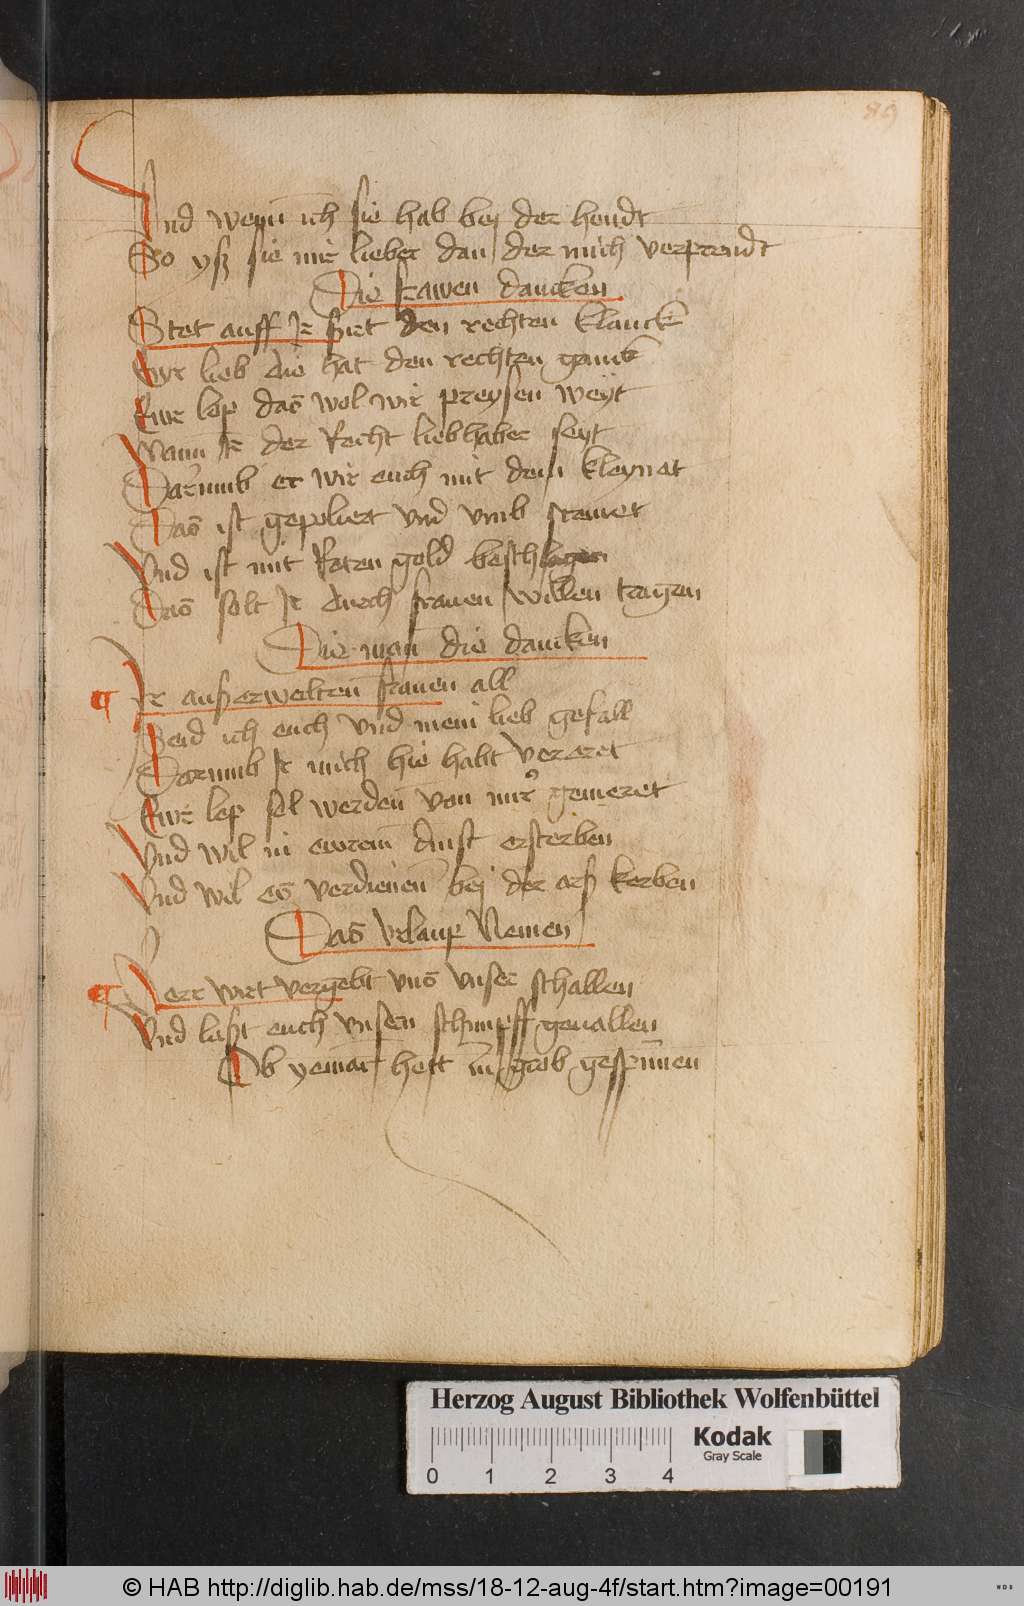 89
Vnd wenn ich sie hab bej der hendt
So yß sie mir lieber dan der mich verprendt
Die frawen dancken
Stet auff Ir hiet den rechten klanck
Ewr lieb die hat den rechten ganck
Ewr lop das wol wir preysen weyt
Wann Ir der Recht liebhaber seyt
Darumb er wir euch mit dem kleynet
Das ist gepoliert vnd vmb
Vnd ist mit Roten gold beschlagen
Das solt Ir durch frauen willen tragen
Die man die dancken
Ir außerwelten frauen all
Seid ich euch vnd mein lieb gefall
Darumb Ir mich hie habt vereret
Ewr lop sol werden von mir gemeret
Vnd wil in ewrem dinst ersterben
Vnd wil es verdienen bej der arß kerben
Das vrlaup Nemen
Herr wirt vergebt vns vnser schallen
Vnd laßt euch vnsern schimpff geuallen
Ob yemant hett zu grob gespunnen
Herzog August Bibliothek Wolfenbüttel
Kodak
Gray Scale
0 1 2 3 4
© HAB http://diglib.hab.de/mss/18-12-aug-4f/start.htm?image=00191